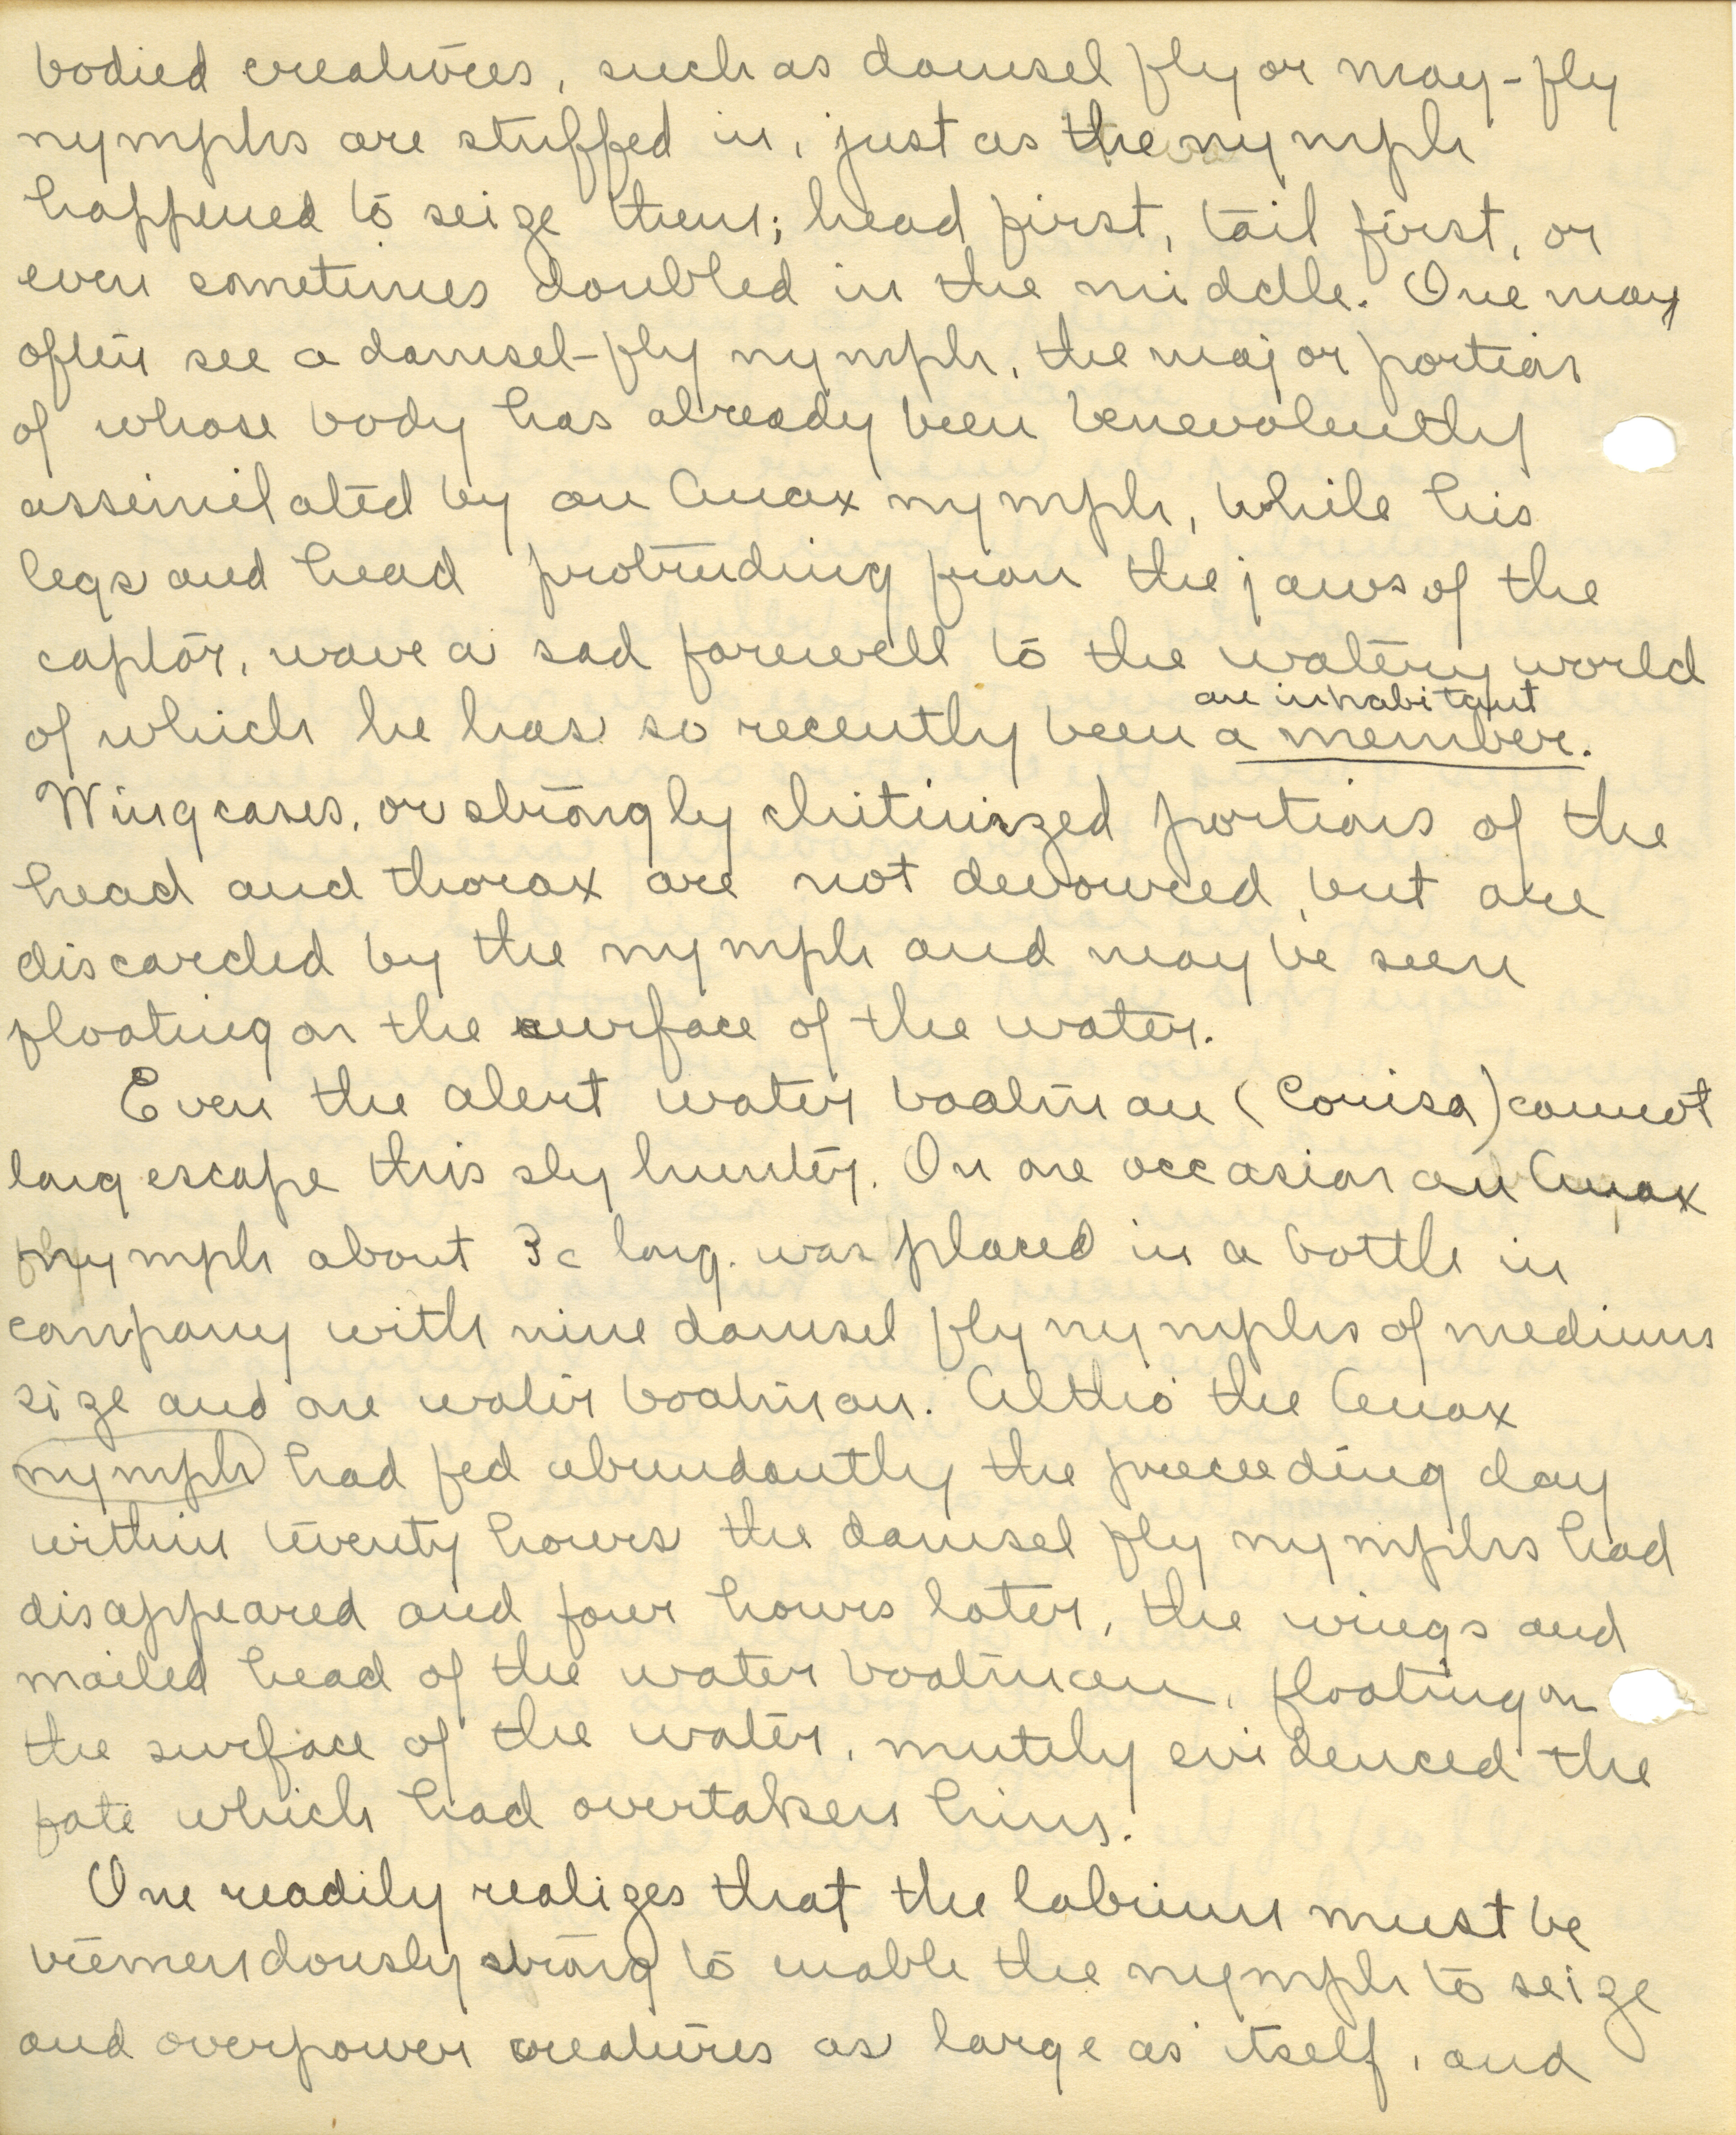 bodied creatures, such as damsel fly or may-fly
nymphs are stuffed in, just as the nymph
happened to seize them; head first, tail first, or
even sometimes doubled in the middle. One may
often see a damsel-fly nymph, the major portion
of whose body has already been benevolently
assimilated by an Anax nymph, while his
legs and head protruding from the jaws of the
captor, wave a sad farewell to the watery world
an inhabitant
of which he has so recently been a member.
Wing cases, or strongly chitinized portions of the
head and thorax are not devoured, but are
discarded by the nymph and may be seen
floating on the surface of the water.
Even the alert water boatman (Corisa) cannot
long escape this sly hunter. On one occasion an Anax
nymph about 3c long. was placed in a bottle in
company with nine damsel fly nymphs of medium
size and one water boatman. Altho' the Anax
nymph had fed abundantly the preceeding day
within twenty hours the damsel fly nymphs had
disappeared and four hours later, the wings and
mailed head of the water boatman, floating on
the surface of the water, mutely evidenced the
fate which had overtaken him.
One readily realizes that the labium must be
tremendously strong to enable the nymph to seize
and overpower creatures as large as itself, and